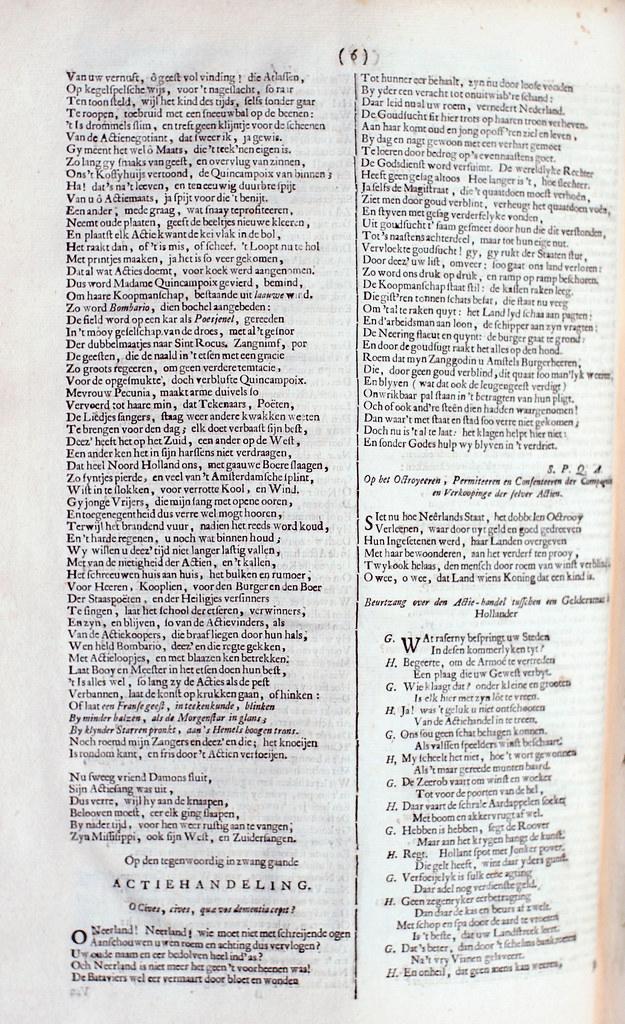 (6)
Van uw vernuft, ô geest vol vinding! die Atlassen,
Op kegelspelsche wijs, voor 't nageslacht, so rair
Ten toon steld, wijl het kind des tijds, selfs sonder gaar
Te roopen, toebruid met een sneeuwbal op de beenen:
't Is drommels slim, en treft geen klijntje voor de scheenen
Van de Actienegotiant, dat sweer ik, ja gewis.
Gy meent het wel ô Maats, die 't teek'nen eigen is.
Zo lang gy smaks van geest, en overvlug van zinnen,
Ons 't Koffyhuijs vertoond, de Quincampoix van binnen;
Ha! dat 's na 't leeven, en ten eeuwig duurbre spijt
Van u ô Actiemaats, ja spijt voor die 't benijt.
Een ander, mede graag, wat snaay te profiteeren,
Neemt oude plaaten, geeft de beeltjes nieuwe kleeren,
En plaatst elk Actie kwant de kei vlak in de bol,
Het raakt dan, of 't is mis, of scheef. 't Loopt nu te hol
Met printjes maaken, ja het is so veer gekomen,
Dat al wat Acties doemt, voor koek werd aangenomen.
Dus word Madame Quincampoix gevierd, bemind,
Om haare Koopmanschap, bestaande uit laauwe wind.
Zo word Bombario, dien bochel aangebeden:
De field word op een kar als Poesjenel, gereeden
In 't mooy geselschap van de droes, met al 't gesnor
Der dubbelmaatjes naar Sint Rocus, Zangnimf, por
De geesten, die de naald in 't etsen met een gracie
Zo groots regeeren, om geen verdere tentacie,
Voor de opgesmukte, doch verbluste Quincampoix.
Mevrouw Pecunia, maakt arme duivels so
Vervoerd tot haare min, dat Tekenaars, Poëten,
De Liedjes sangers, staag weer andere kwakken weeten
Te brengen voor den dag; elk doet verbaast sijn best,
Deez' heeft het op het Zuid, een ander op de West,
Een ander ken het in sijn harssens niet verdraagen,
Dat heel Noord Holland ons, met gaauwe Boere slaagen,
Zo fyntjes pierde, en veel van 't Amsterdamsche splint,
Wist in te slokken, voor verrotte Kool, en Wind.
Gy jonge Vrijers, die mijn sang met opene ooren,
En toegenegentheid dus verre wel mogt hooren,
Terwijl het brandend vuur, nadien het reeds word koud,
En 't harde regenen, u noch wat binnen houd;
Wy willen u deez' tijd niet langer lastig vallen,
Met van de nietigheid der Actien, en 't kallen,
Het schreeuwen huis aan huis, het bulken en rumoer,
Voor Heeren, Kooplien, voor den Burger en den Boer
Der Staaspoëten, en der Heiligjes versinners
Te singen, laat het school der etseren, verwinners,
En zyn, en blijven, so van de Actievinders, als
Van de Actiekoopers, die braaf liegen door hun hals,
Wen held Bombario, deez' en die regte gekken,
Met Actieloopjes, en met blaazen ken betrekken:
Laat Booy en Meester in het etsen doen hun best,
't Is alles wel, so lang zy de Acties als de pest
Verbannen, laat de konst op krukken gaan, of hinken:
Of laat een Franse geest, in teekenkunde, blinken
By minder balzen, als de Morgenstar in glans;
By klynder Starren pronkt, aan 's Hemels hoogen trans.
Noch roemd mijn Zangers en deez' en die; het knoeijen
Is rondom kant, en fris door 't Actien verfoeijen.
Nu sweeg vriend Damons fluit,
Sijn Actiesang was uit,
Dus verre, wijl hy aan de knaapen,
Belooven moest, eer elk ging slaapen,
By nader tijd, voor hen weer rustig aan te vangen,
Zyn Missisippi, ook sijn West, en Zuidersangen.
Op den tegenwoordig in zwang gaande
ACTIEHANDELING.
O Cives, cives, quæ vos dementia cepit?
O Neerland! Neerland! wie moet niet met schreijende ogen
Aanschouwen uwen roem en achting dus vervlogen?
Uw oude naam en eer bedolven heel in d'as?
Och Neerland is niet meer het geen 't voorheenen was!
De Bataviers wel eer vermaart door bloet en wonden
Tot hunner eer behaalt, zyn nu door loose vonden
By yder een veracht tot onuitwisb're schand:
Daar leid nu al uw roem, vernedert Nederland.
De Goudsucht sit hier trots op haaren troon verheven.
Aan haar komt oud en jong opoff'ren ziel en leven,
By dag en nagt gewoon met een verhart gemoet
Te loeren door bedrog op 's evennaastens goet.
De Godsdienst word versuimt. De wereldlyke Rechter
Heeft geen gesag altoos. Hoe langer is 't, hoe slechter.
Ja selfs de Magistraat, die 't quaatdoen moest verhoên,
Ziet men door goud verblint, verheugt het quaatdoen voên,
En styven met gesag verderfelyke vonden,
Uit goudsucht t'saam gesmeet door hun die dit verstonden,
Tot 's naastens achterdeel, maar tot hun eige nut.
Vervloekte goudsucht! gy, gy rukt der Staaten stut,
Door deez' uw list, omveer: soo gaat ons land verloren:
Zo word ons druk op druk, en ramp op ramp beschoren.
De Koopmanschap staat stil: de kassen raken leeg.
Die gist'ren tonnen schats besat, die staat nu veeg
Om 'tal te raken quyt: het Land lyd schaa aan pagten;
En d'arbeidsman aan loon, de schipper aan zyn vragten:
De Neering flaeut en quynt: de burger gaat te grond:
En door de goudsugt raakt het alles op den hond.
Roem dat myn Zanggodin u Amstels Burgerheeren,
Die, door geen goud verblind, dit quaat soo man'lyk weeren,
En blyven (wat dat ook de leugengeest verdigt)
Onwrikbaar pal staan in 't betragten van hun pligt.
Och of ook and're steên dien hadden waargenomen!
Dan waar 't met staat en stad soo verre niet gekomen;
Doch nu is 't al te laat: het klagen helpt hier niet:
En sonder Godes hulp wy blyven in 't verdriet.
S. P. Q. A.
Op het Octroyeeren, Permiteeren en Consenteeren der Compagnie
en Verkoopinge der selver Actien.
Siet nu hoe Neêrlands Staat, het dobb'len Octrooy
Verleenen, waar door tyt geld en goed gedreeven
Hun Ingesetenen werd, haar Landen overgeven
Met haar bewoonderen, aan het verderf ten prooy,
Twylook helaas, den mensch door roem van winst verblind
O wee, o wee, dat Land wiens Koning dat een kind is.
Beurtzang over den Actie-handel tusschen een Geldersman en
Hollander
G. WAt raserny bespringt uw Steden
In desen kommerlyken tyt?
H. Begeerte, om de Armoê te vertreden
Een plaag die uw Geweft verbyt.
G. Wie klaagt dat? onder kleine en grooten
Is elk hier met zyn lôt te vreen.
H. Ja! was 't geluk u niet ontschooten
Van de Actichandel in te treen.
G. Ons sou geen schat behagen konnen,
Als valssen speelders winst beschaart.
H. My scheelt het niet, hoe 't wort gewonnen
Als 't maar gereede munten baard.
G. De Zeerob vaart om winst en woeker
Tot voor de poorten van de hel,
H. Daar vaart de schrale Aardappelen soeker
Met boom en akkervrugt af wel.
G. Hebben is hebben, segt de Roover
Maar aan het krygen hangt de kunst.
H. Regt. Hollant spot met Jonker pover.
Die gelt heeft, wint daar yders gunst.
G. Verfoeijelyk is sulk eene agting
Daar adel nog verdienste geld.
H. Geen zegenryker eerbetragting
Dan daar de kas en beurs af zwelt.
Met schop en spa door de aard te vroeten
Is 't beste, dat uw Landstreek leert.
G. Dat 's beter, dan door 't schelms bankroeten
Na 't vry Vianen gelaveert.
H. En onheil, dat geen mens kan weeren,